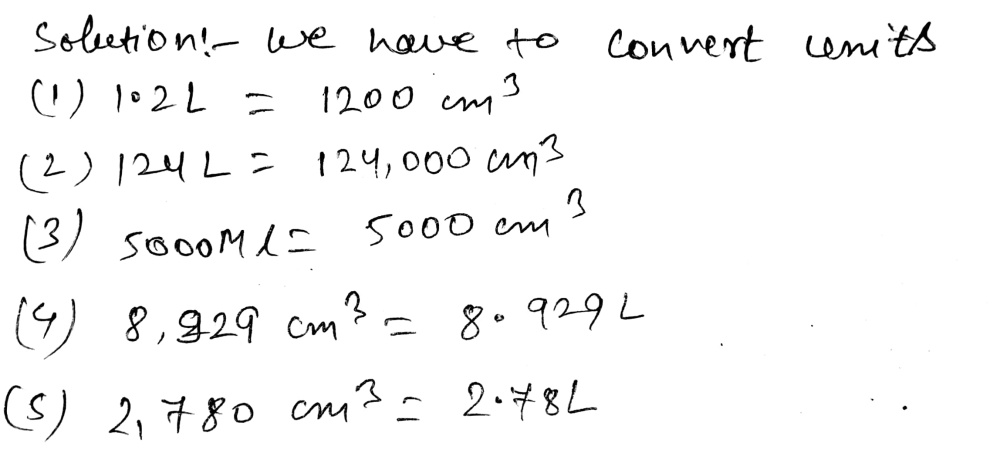 Solution!- We have to convert units
(1) 1.2L = 1200 cm³
(2) 124 L = 124,000 cm³
(3) 5000Ml = 5000 cm³
(4) 8,929 cm³ = 8.929L
(5) 2,780 cm³ = 2.78L